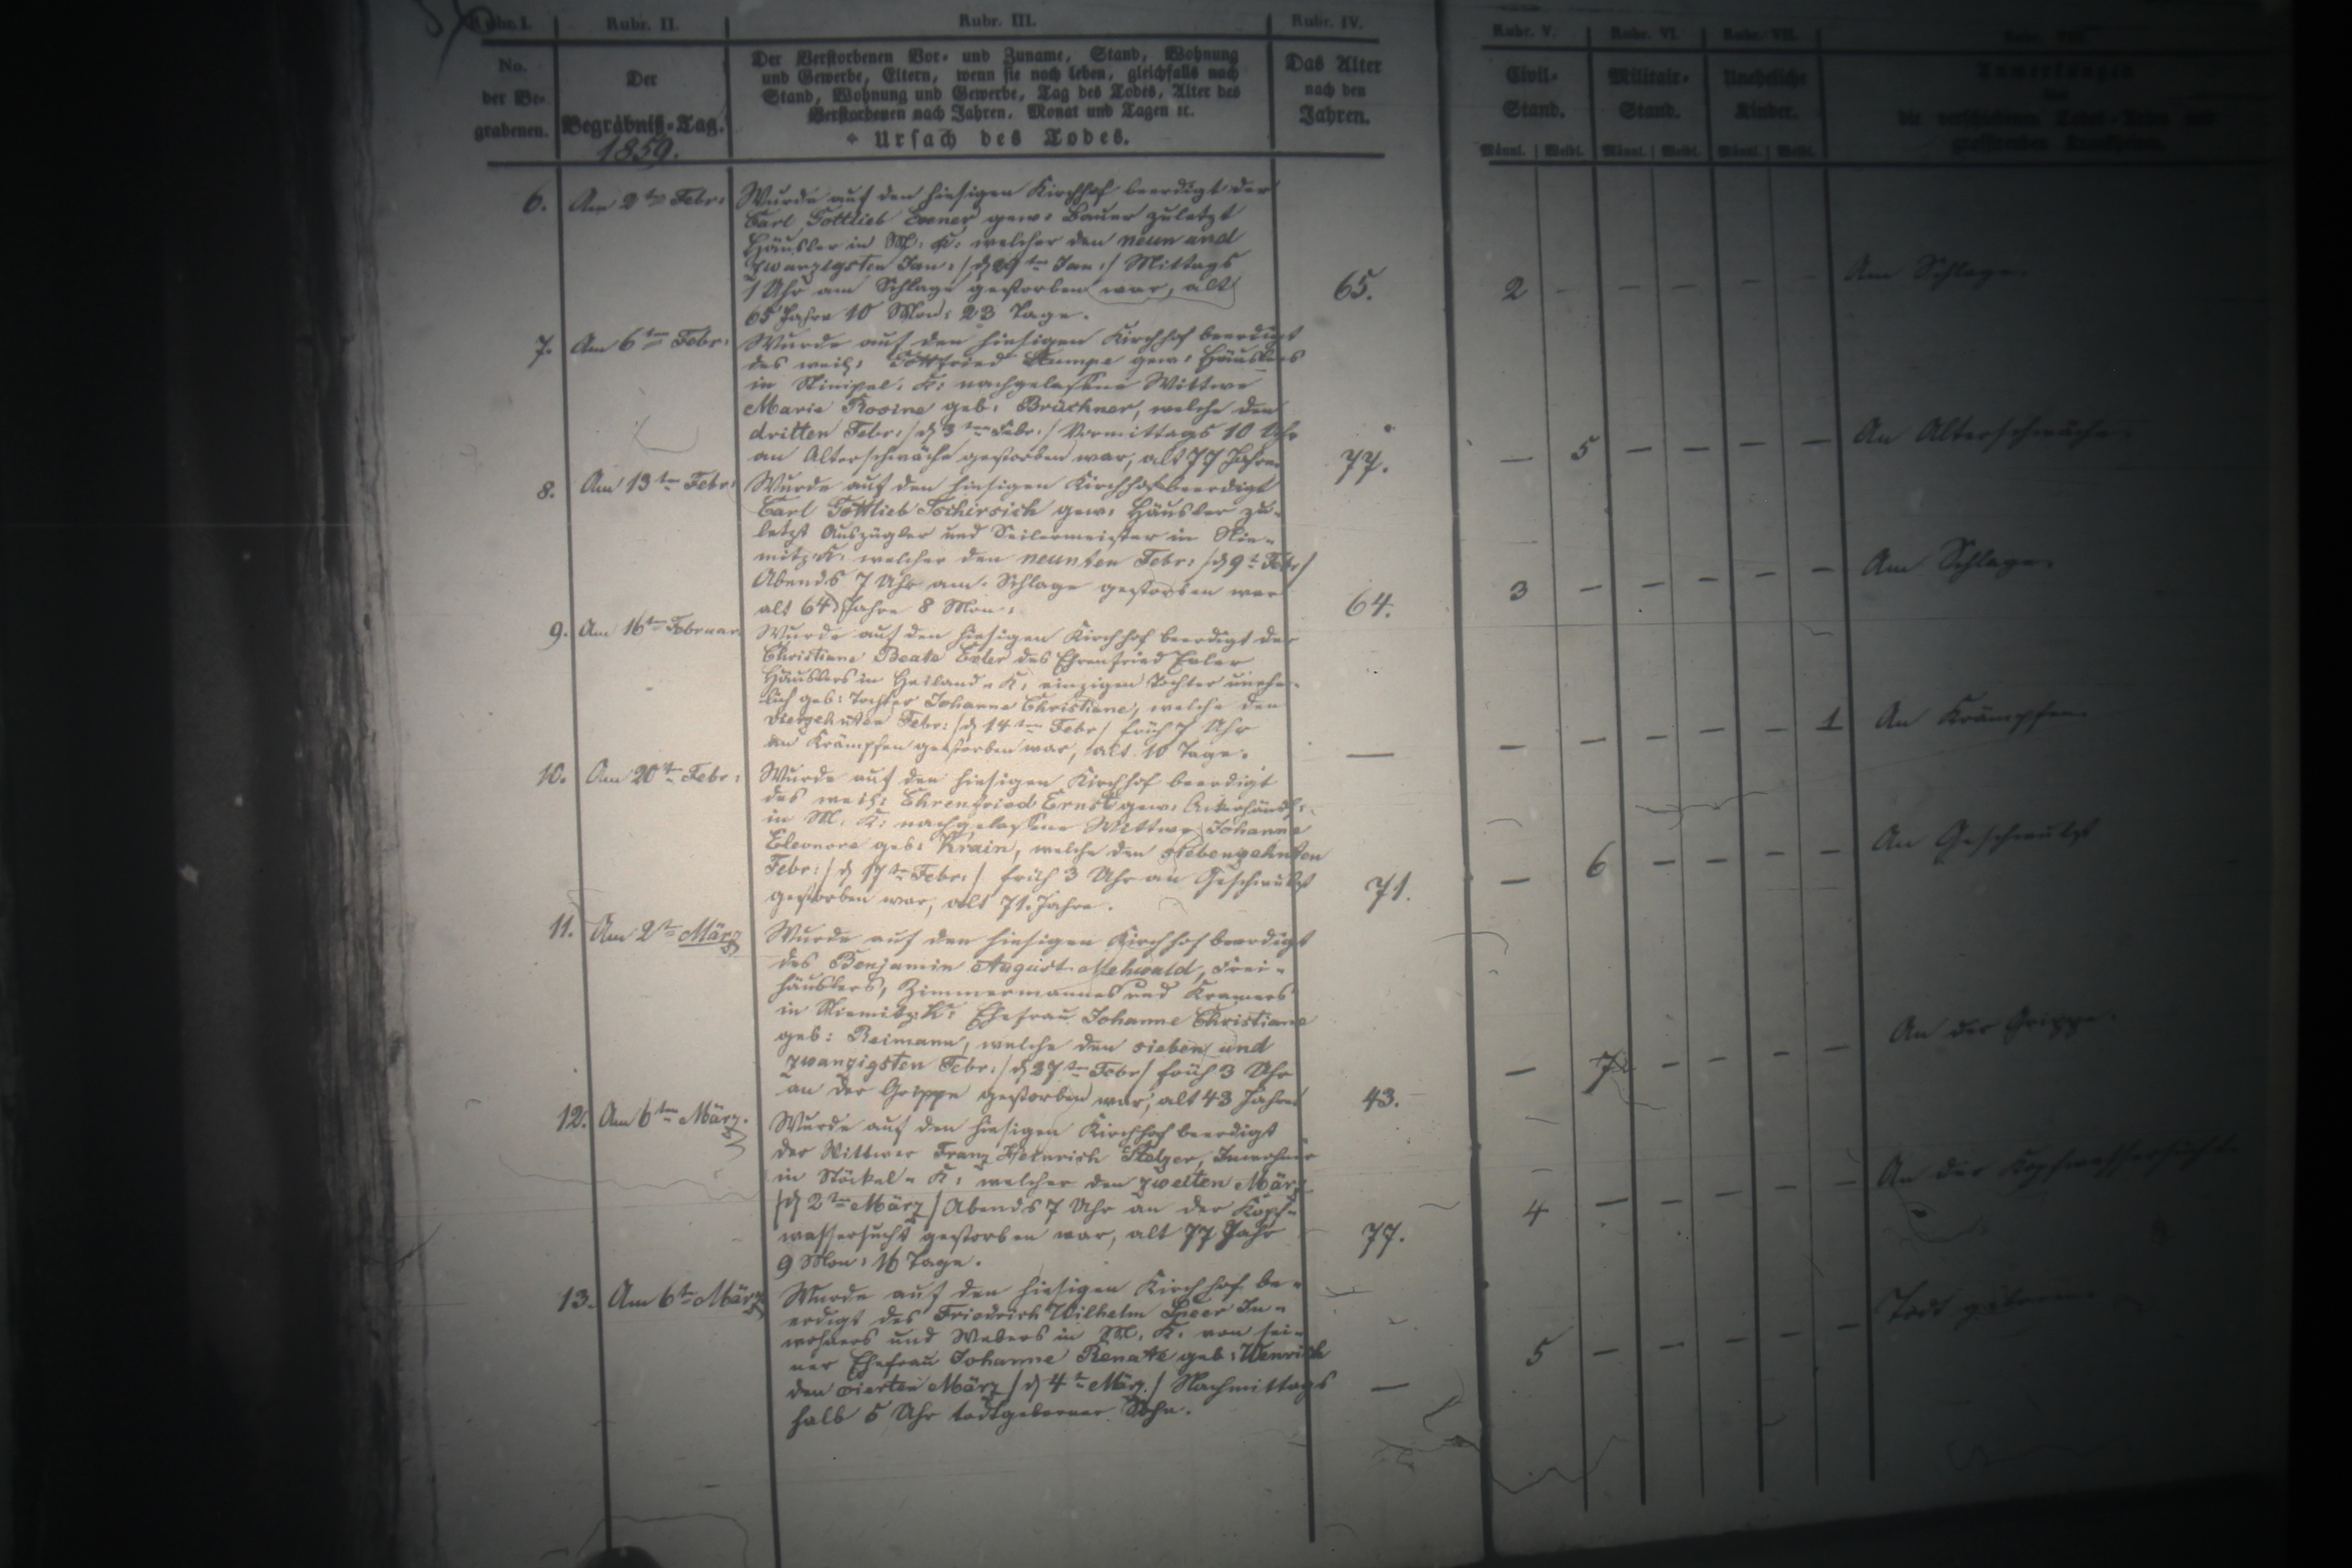 Rubr. I. Rubr. II. Rubr. III. Rubr. IV. Rubr. V. Rubr. VI. Rubr. VII.
No. der Be- grabenen.
Der Begräbniß-Tag.
1859.
Der Verstorbenen Vor- und Zuname, Stand, Wohnung
und Gewerbe, Eltern, wenn sie noch leben, gleichfalls nach
Stand, Wohnung und Gewerbe, Tag des Todes, Alter des
Verstorbenen nach Jahren, Monat und Tagen ꝛc.
Ursach des Todes.
Das Alter nach den Jahren.
Civil- Stand.
Militair- Stand.
Uneheliche Kinder.
Anmerkungen
Männl. Weibl. Männl. Weibl. Männl. Weibl.
6. Am 2ten Febr: Wurde auf den hiesigen Kirchhof beerdigt der
Carl Gottlieb gew: Bauer zuletzt
Häusler in M. K: welcher den neun und
zwanzigsten Jan: /d 29ten Jan:/ Mittags
1 Uhr am Schlage gestorben war, alt
65 Jahre 10 Mon: 23 Tage.
65. 2 – – – – – Am Schlage.
7. Am 6ten Febr: Wurde auf den hiesigen Kirchhof beerdigt
des weil: Gottfried gew: Häuslers
in K: nachgelassene Wittwe
Marie Rosine geb: Brückner, welche den
dritten Febr: /d 3ten Febr:/ Vormittags 10 Uhr
an Alterschwäche gestorben war, alt 77 Jahre.
77. — 5 — — — — An Alterschwäche.
8. Am 13ten Febr: Wurde auf den hiesigen Kirchhof beerdigt
Carl Gottlieb Tschirsich gew: Häusler zu-
letzt Auszügler und Seilermeister in Nie-
mitz K: welcher den neunten Febr: /d 9t Febr/
Abends 7 Uhr am Schlage gestorben war
alt 64 Jahre 8 Mon:
64. 3 — — — — — Am Schlage.
9. Am 16ten Februar. Wurde auf den hiesigen Kirchhof beerdigt der
Christiane Beate Exler des Ehrenfried Exler
Häuslers in Heiland-K: einzigen Tochter unehe-
lich geb: Tochter Johanne Christiane, welche den
vierzehnten Febr: /d 14ten Febr/ früh 7 Uhr
an Krämpfen gestorben war, alt 10 Tage.
— — — — — — 1 An Krämpfen
10. Am 20ten Febr: Wurde auf den hiesigen Kirchhof beerdigt
des weil: Ehrenfried Ernst gew:
in M. K: nachgelassene Wittwe Johanne
Eleonore geb: Krain, welche den siebenzehnten
Febr: /d 17ten Febr:/ früh 3 Uhr an Geschwulst
gestorben war, alt 71. Jahre.
71. — 6 — — — — An Geschwulst
11. Am 2ten März Wurde auf den hiesigen Kirchhof beerdigt
des Benjamin August Mehwald, Frei-
häuslers, Zimmermannes und Kramers
in Niemitz K: Ehefrau Johanne Christiane
geb: Reimann, welche den sieben und
zwanzigsten Febr: /d 27ten Febr/ früh 3 Uhr
an der Grippe gestorben war, alt 43 Jahre
43. — 7 — — — — An der Grippe.
12. Am 6ten März. Wurde auf den hiesigen Kirchhof beerdigt
der Wittwer Franz Heinrich Stelzer, Inwohner
in Stöckel-K: welcher den zweiten März
/d 2ten März/ Abends 7 Uhr an der Kopf-
wassersucht gestorben war, alt 77 Jahr
9 Mon: 16 Tage.
77. 4 — — — — — An der Kopfwassersucht.
13. Am 6ten März Wurde auf den hiesigen Kirchhof be-
erdigt des Friedrich Wilhelm Speer In-
wohners und Webers in M. K. von sei-
ner Ehefrau Johanne Renate geb: Wenrich
den vierten März /d 4ten März./ Nachmittags
halb 5 Uhr todtgeborner Sohn.
— 5 — — — — — Todt geboren